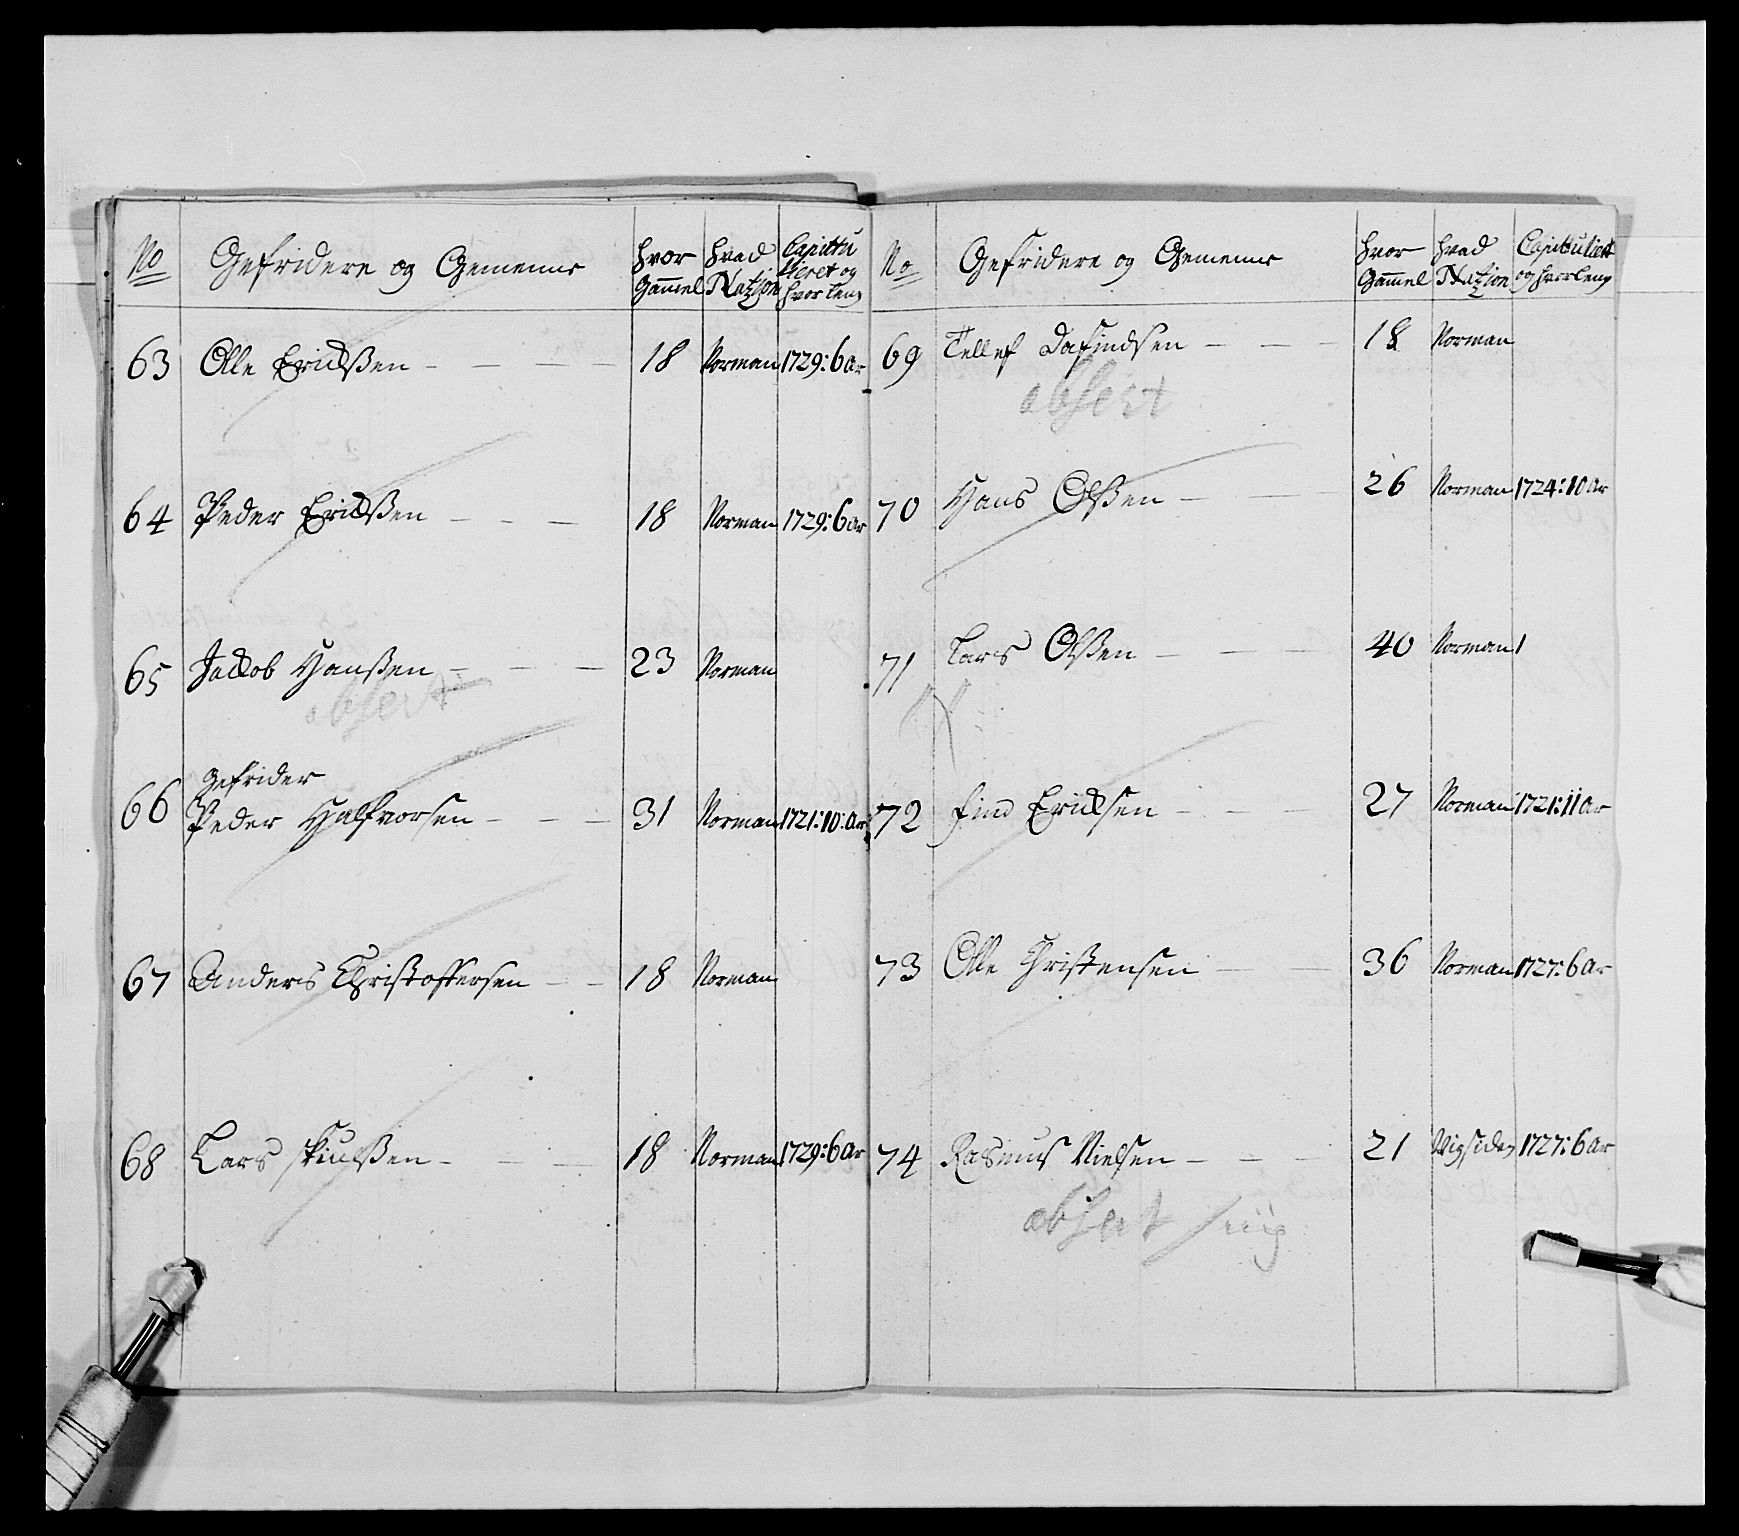 No Gefridere og Gemeenne hvor Gam̄el hvad Natzion Capittulleret og hvor leng
63 Olle Erichßen - - - - 18 Norman 1729: 6 ar
64 Peder Erichßen - - - 18 Norman 1729: 6 ar
65 Jackob Hanßen - - - 23 Norman
absent
66 Gefrider
Peder Halfvorsen - - - 31 Norman 1721: 10: ar
67 Anders Christoffersen - - 18 Norman
68 Lars Skiulßen - - - 18 Norman 1729: 6 ar
No Gefridere og Gemeenne hvor Gam̄el hvad Natzion Capittuliert og hvor leng
69 Tellef Dafindsen - - - 18 Norman
absent
70 Hans Olßen - - - 26 Norman 1724: 10 ar
71 Lars Olßen - - - 40 Norman 1
72 Find Ericksen - - - 27 Norman 1721: 11 ar
73 Olle Christensen - - 36 Norman 1727: 6 ar
74 Rasmus Nielsen - - - 21 1727: 6 ar
absent siug